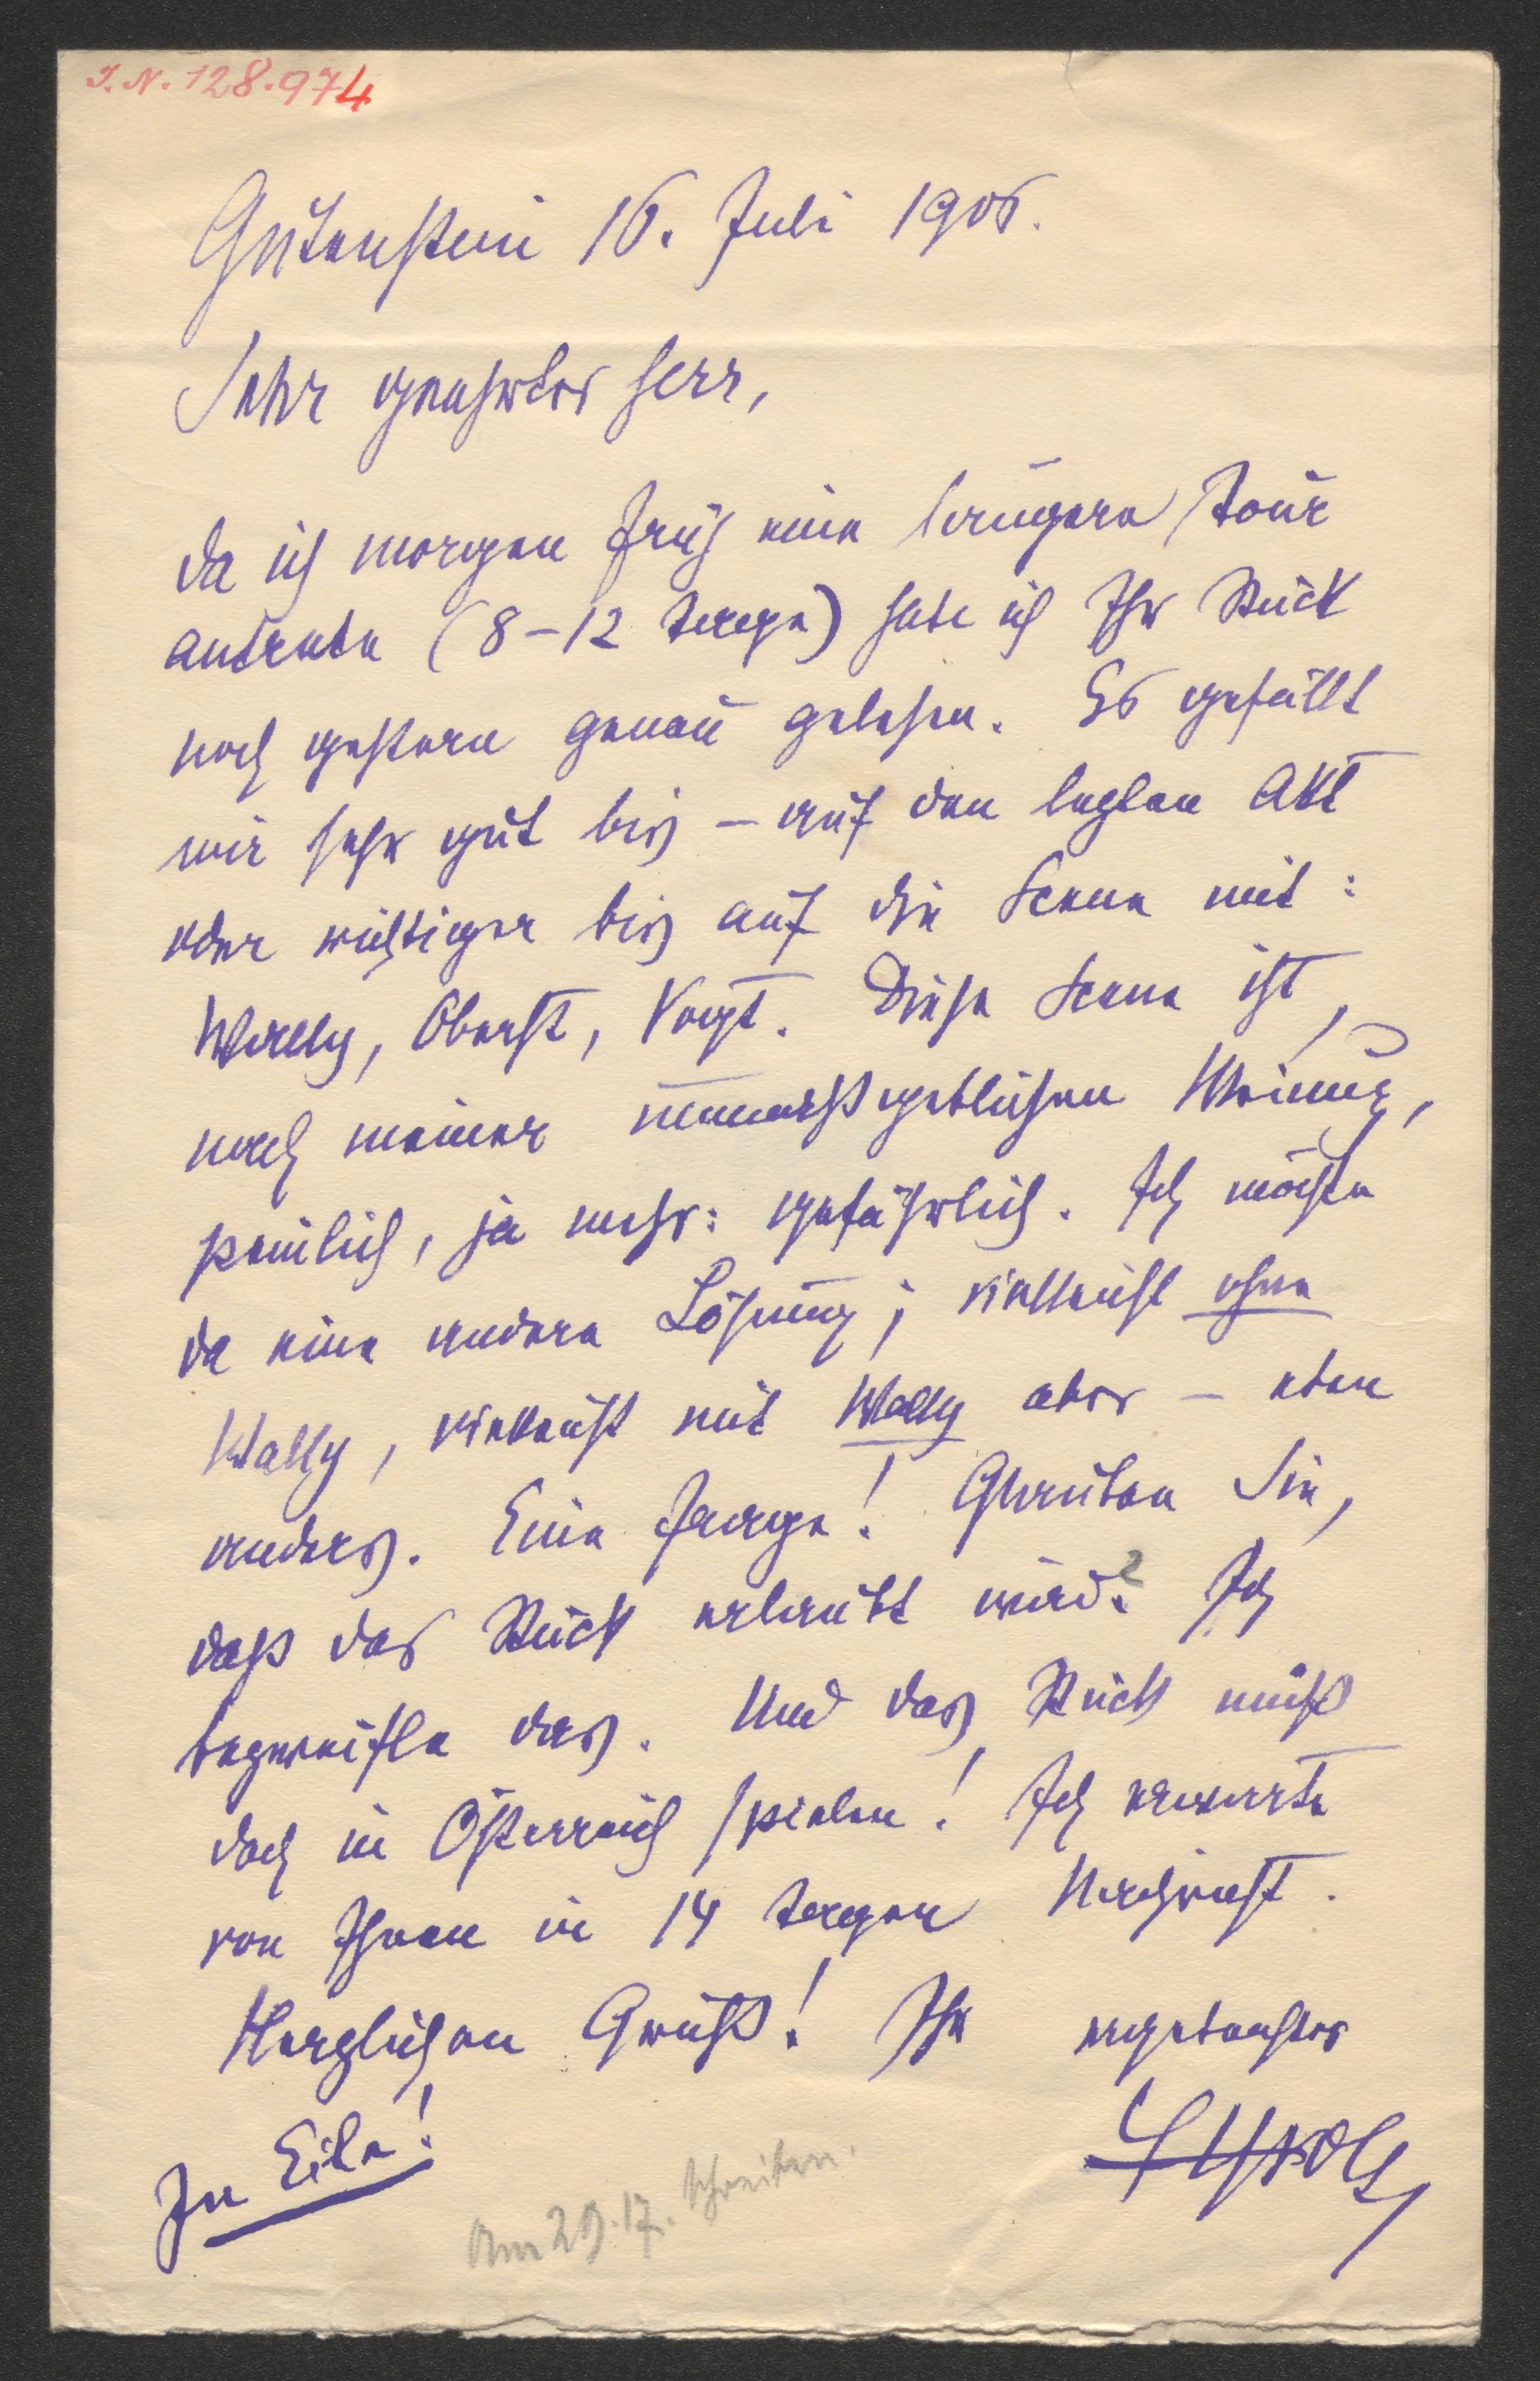 I.N. 128.974
Gutenstein 16. Juli 1906.
Sehr geehrter Herr,
da ich morgen früh eine längere Tour
antrete (8–12 Tage) habe ich Ihr Stück
noch gestern genau gelesen. Es gefällt
mir sehr gut bis – auf den letzten Akt
oder richtiger bis auf die Scene mit:
Wally, Oberst, Vogt. Diese Scene ist,
nach meiner unmaßgeblichen Meinung,
peinlich, ja mehr: gefährlich. Ich möchte
da eine andere Lösung; vielleicht ohne
Wally, vielleicht mit Wally aber – eben
anders. Eine Frage! Glauben Sie,
daß das Stück erlaubt wird? Ich
bezweifle das. Und das Stück muß
doch in Österreich spielen! Ich erwarte
von Ihnen in 14 Tagen Nachricht.
Herzlichen Gruß! Ihr ergebenster
In Eile!
Am 29.17. schreiben.